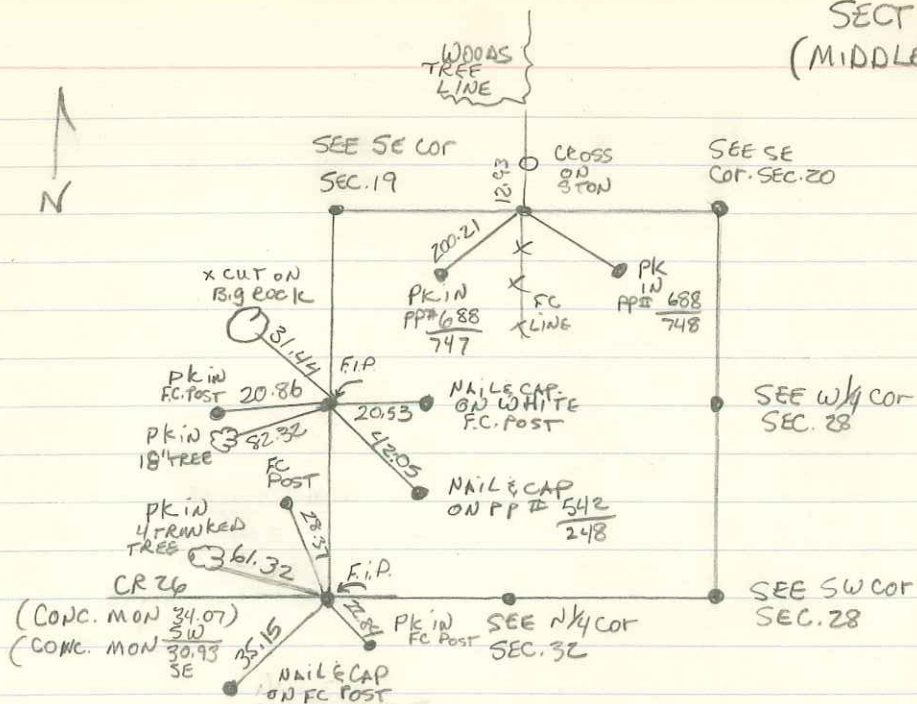 SECT
(MIDDLE
WOODS
TREE
LINE
N
SEE SE COR
SEC. 19
12.93
CROSS
ON
STON
SEE SE
COR. SEC. 20
200.21
PK IN
PP# 688
747
FC
LINE
PK
IN
PP# 688
748
X CUT ON
Big ROCK
31.44
F.I.P.
PK IN
F.C. POST
20.86
20.53
NAIL & CAP
ON WHITE
F.C. POST
SEE W 1/4 COR
SEC. 28
PK IN
18" TREE
82.32
42.05
FC
POST
28.37
NAIL & CAP
ON PP # 542
248
PK IN
4 TRUNKED
TREE
61.32
F.I.P.
CR 26
(CONC. MON 34.07)
SW
(CONC. MON 30.93
SE
35.15
PK IN
FC POST
SEE N 1/4 COR
SEC. 32
SEE SW COR
SEC. 28
NAIL & CAP
ON FC POST